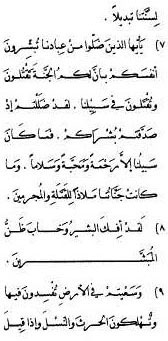 لسنّتنا تبديلاً .
٧) يأيها الذين ضلّوا من عبادنا تبشرون
أنفسكم بأن لكم الجنة تَقتُلون
وتُقتَلون في سبيلنا . لقد ضللتم إذ
صدقتم بشراكم . فما كان
سبيلنا إلا رحمةً ومحبةً وسلاماً . وما
كانت جنّاتنا ملاذاً للقتلة والمجرمين .
٨) لقد أفك البشير وخاب ظنّ
المبشّرين .
٩) وسعيتم في الأرض تفسدون فيها
وتهلكون الحرث والنسل وإذا قيل